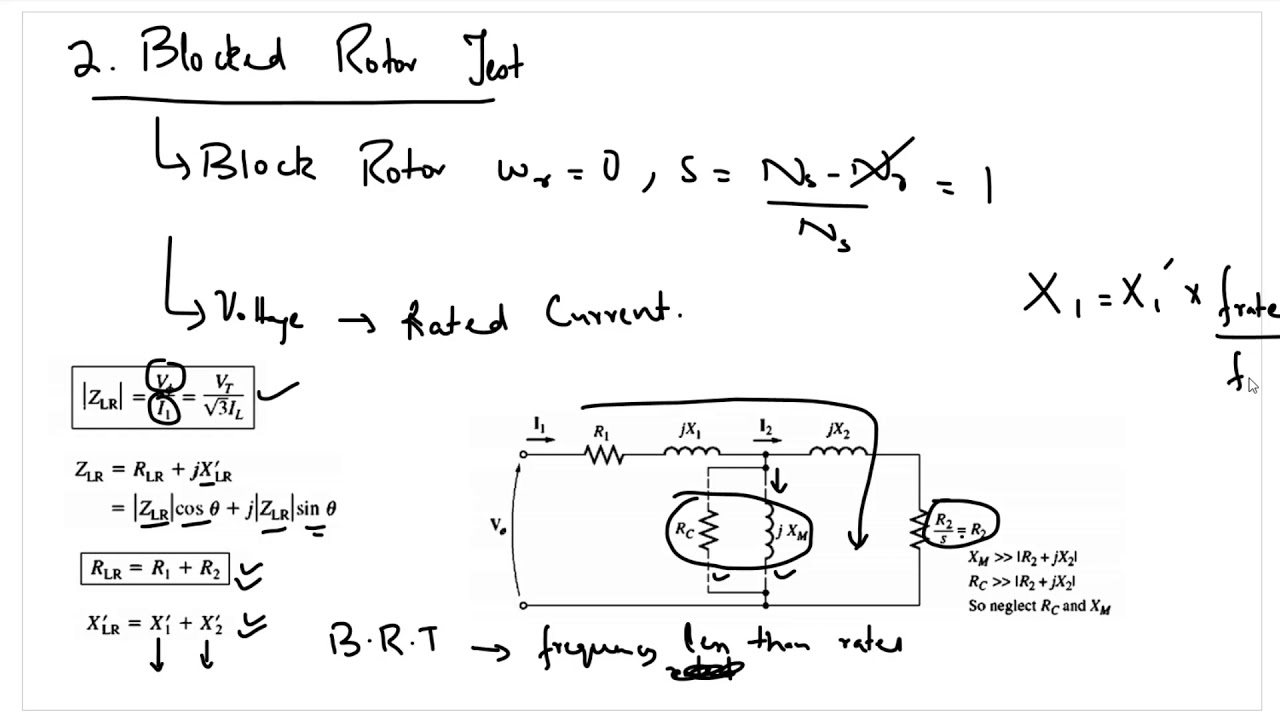 2. Blocked Rotor Test
↳ Block Rotor ωr = 0 , S = (Ns - Nr) / Ns = 1
↳ Voltage → Rated Current.
X1 = X1′ × frate / f
|ZLR| = V1/I1 = VT/√3IL ✓
ZLR = RLR + jX′LR
= |ZLR|cos θ + j|ZLR|sin θ
RLR = R1 + R2
X′LR = X′1 + X′2
I1
R1
jX1
I2
jX2
RC
j XM
R2/s = R2
XM >> |R2 + jX2|
RC >> |R2 + jX2|
So neglect RC and XM
B.R.T → frequency less than rated